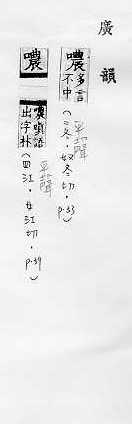 廣韻
噥多言不中(二冬,奴冬切,p.33)
平聲
噥噥嗔語出字林(四江,女江切,p.39)
平聲